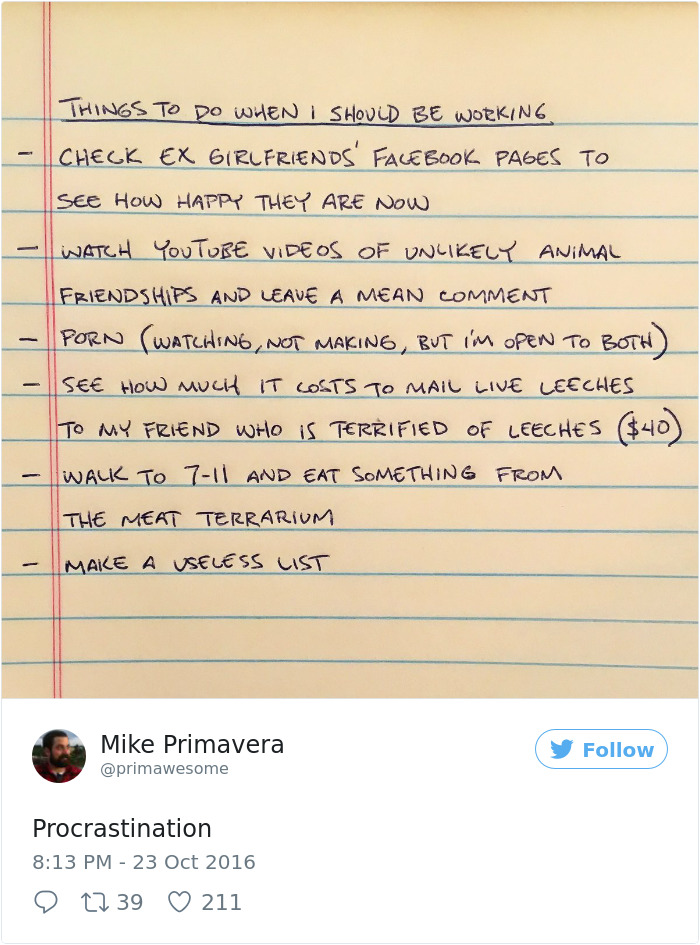 THINGS TO DO WHEN I SHOULD BE WORKING
- CHECK EX GIRLFRIENDS' FACEBOOK PAGES TO
SEE HOW HAPPY THEY ARE NOW
- WATCH YOUTUBE VIDEOS OF UNLIKELY ANIMAL
FRIENDSHIPS AND LEAVE A MEAN COMMENT
- PORN (WATCHING, NOT MAKING, BUT I'M OPEN TO BOTH)
- SEE HOW MUCH IT COSTS TO MAIL LIVE LEECHES
TO MY FRIEND WHO IS TERRIFIED OF LEECHES ($40)
- WALK TO 7-11 AND EAT SOMETHING FROM
THE MEAT TERRARIUM
- MAKE A USELESS LIST
Mike Primavera
@primawesome
Follow
Procrastination
8:13 PM - 23 Oct 2016
39 211